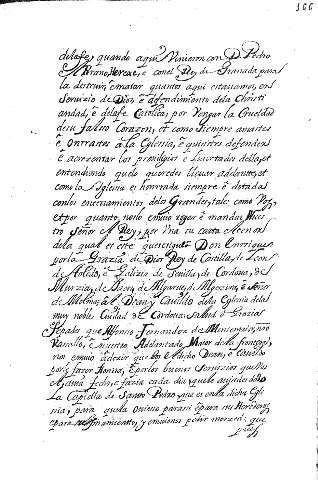 166
delafe, quando aquí Vinieron con D. Pedro
Tirano, Hereze, e con el Rey de Granada para
la destruir, e matar quantos aquí estavamos, en
Servizio de Dios, e defendimiento dela Christi
andad, e dela fe Catolica, por Vengar la Crueldad
de su falso Corazon, et como siempre amastes
e onrrastes a la Yglesia, e quisistes defender
e acrecentar los previlegios e livertades della, et
entendiendo que lo queredes llevar adelante, et
como la Yglesia es honrrada siempre e dotada
con los enterramientos de los Grandes, tales como Vos,
et por quanto nos lo envio rogar e mandar Nues
tro Señor el Rey, por Una su carta el tenor
dela qual es este que se sigue: Don Enrrique
por la Grazia de Dios Rey de Castilla, de Leon,
de Toledo, de Galizia, de Sevilla, de Cordova, de
Murzia, de Jaen, de Algecira, e Señor
de Molina, al Dean, y Cavildo dela Yglesia dela
muy noble Ciudad de Cordova, salud e Grazia
Sepades que Alfonso Fernandez de Montemayor, nro
Vasallo, e nuestro Adelantado Maior dela frontera,
nos envio a dezir que Vos el dicho Dean, e Cavildo
por le fazer honrra, e por los buenos servizios que el les
fecho, e fazia cada dia, que le
La Capilla de Santo Pedro, que es en la dicha Ygle
sia, para que la oviese para si e para su
e para su enterramiento, y envionos pedir merced que